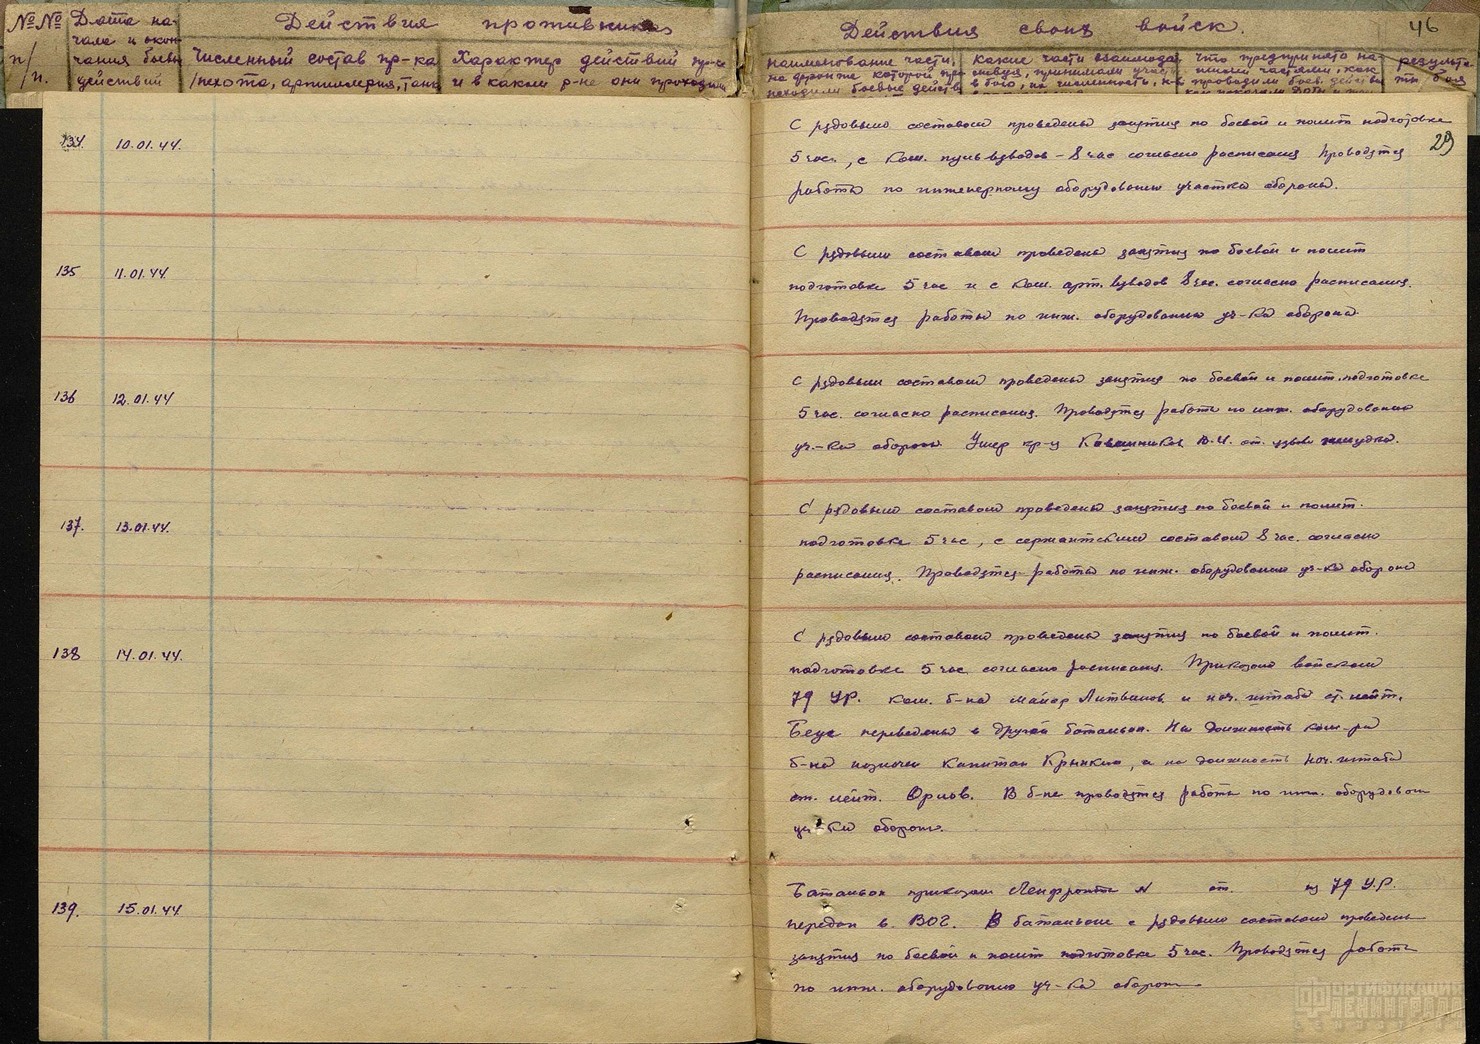 №№ п/п.
Дата начала и окончания боевых действий
Действия противника
Численный состав пр-ка /пехота, артиллерия, танк
Характер действий пр-ка и в каком р-не они проходили
Действия своих войск.
46
наименование части, на фронте которой проходили боевые действ
какие части взаимодействуя, принимали участ в бою, их численность,
что предпринято нашими частями, как проводили боев. действ
результаты боя
29
134 10.01.44.
С рядовым составом проведены занятия по боевой и полит подготовке
5 час., с ком. пульвзводов – 8 час согласно расписания Проводятся
работы по инженерному оборудованию участка обороны.
135 11.01.44.
С рядовым составом проведены занятия по боевой и полит
подготовке 5 час и с ком. арт. взводов 8 час. согласно расписания.
Проводятся работы по инж. оборудованию уч-ка обороны
136 12.01.44
С рядовым составом проведены занятия по боевой и полит. подготовке
5 час. согласно расписания. Проводятся работы по инж. оборудованию
уч.-ка обороны Умер кр-ц В.И. от язвы желудка.
137. 13.01.44.
С рядовым составом проведены занятия по боевой и полит.
подготовке 5 час, с сержантским составом 8 час. согласно
расписания. Проводятся работы по инж. оборудованию уч-ка обороны
138 14.01.44.
С рядовым составом проведены занятия по боевой и полит.
подготовке 5 час согласно расписания. Приказом войскам
79 УР. ком. б-на майор Литвинов и нач. штаба ст. лейт.
переведены в другой батальон. На должность ком-ра
б-на назначен капитан а на должность нач. штаба
ст. лейт. Орлов. В б-не проводятся работы по инж. оборудован
уч-ка обороны.
139. 15.01.44
Батальон приказом Ленфронта № от. из 79 У.Р.
передан в ВОГ. В батальоне с рядовым составом проведены
занятия по боевой и полит подготовке 5 час. Проводятся работы
по инж. оборудованию уч-ка обороны
ФОРТИФИКАЦИЯ
ЛЕНИНГРАДА